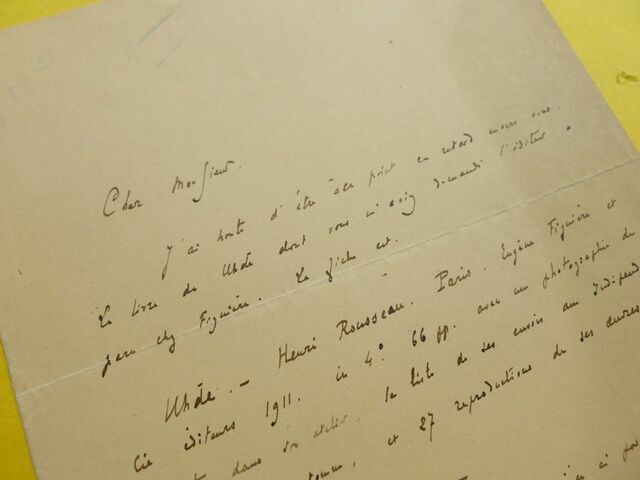 Cher Monsieur.
J'ai honte d'être à ce point en retard envers vous.
Le livre de Uhde dont vous m'avez demandé l'éditeur a
paru chez Figuière. La fiche est.
Uhde. — Henri Rousseau. Paris. Eugène Figuière et
Cie éditeurs 1911. in 4°. 66 pp. avec un photographie du
dans son atelier, la liste de ses envois au Indépend
et 27 reproductions de ses œuvres